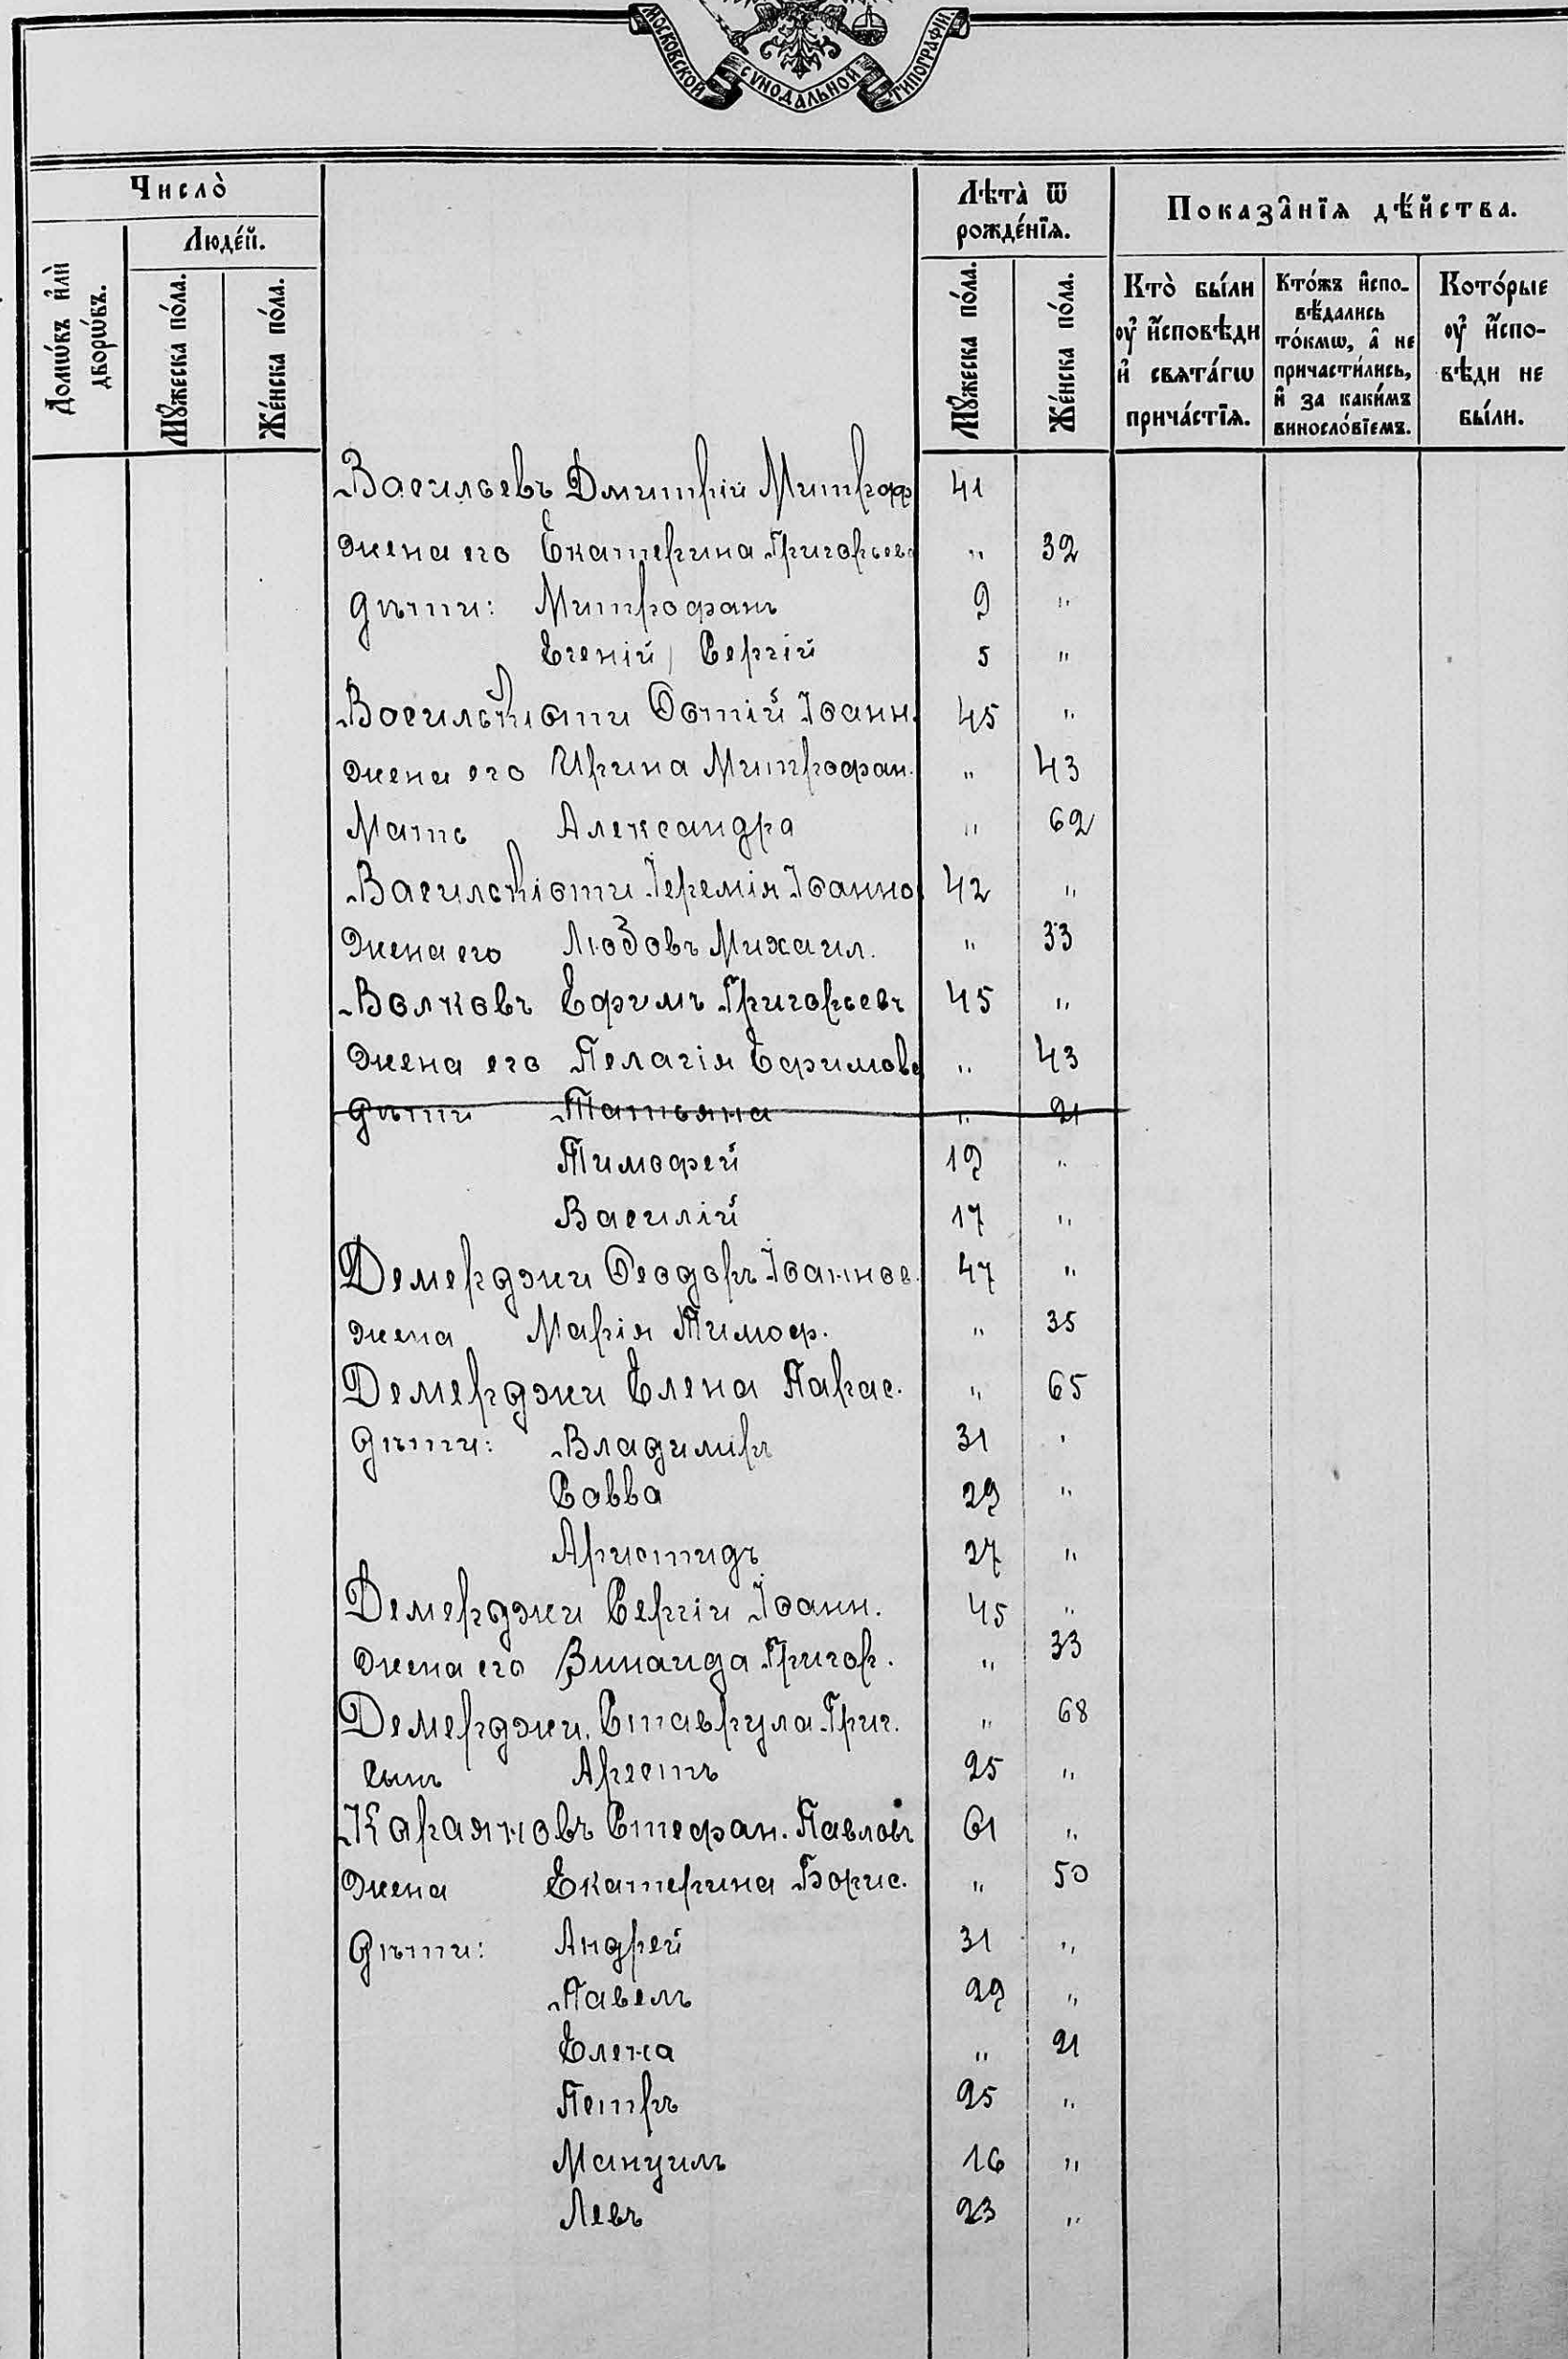 МОСКОВСКОЙ СѴНОДАЛЬНОЙ ТИПОГРАФІИ.
Число̀
Домѡ́въ и҆лѝ дворѡ́въ.
Люде́й.
Мꙋ́жеска по́ла.
Же́нска по́ла.
Лѣта̀ ѿ рожде́нїѧ.
Мꙋ́жеска по́ла.
Же́нска по́ла.
Показа̑нїѧ дѣ́йства.
Кто̀ бы́ли оу҆ и҆́сповѣди и҆ свѧта́гѡ прича́стїѧ.
Кто́жъ и҆спо-вѣ́дались то́кмѡ, а҆ не причасти́лись, и҆ за каки́мъ виносло́вїемъ.
Кото́рые оу҆ и҆́спо-вѣди не бы́ли.
Васильевъ Дмитрій Митроф 41
жена его Екатерина Григорьев " 32
дѣти: Митрофанъ 9 "
Евгеній / Сергій 5 "
Василькіоти Фотій Іоанн. 45 "
жена его Ирина Митрофан. " 43
Мать Александра " 62
Василькіоти Іеремія Іоанно 42 "
жена его Любовь Михаил. " 33
Волковъ Ефимъ Григорьевъ 45 "
жена его Пелагія Ефимова " 43
дѣти Татьяна " 21
Тимофей 19 "
Василій 17 "
Демерджи Ѳеодоръ Іоаннов. 47 "
жена Марія Тимоф. " 35
Демерджи Елена Парас. " 65
дѣти: Владиміръ 31 "
Савва 29 "
Аристидъ 27 "
Демерджи Сергій Іоанн. 45 "
жена его Зинаида Григор. " 33
Демерджи Ставрула Григ. " 68
сынъ 25 "
Караяновъ Стефан. Павловъ 61 "
жена Екатерина Борис. " 50
дѣти: Андрей 31 "
Павелъ 29 "
Елена " 21
Петръ 25 "
Мануилъ 16 "
Левъ 23 "